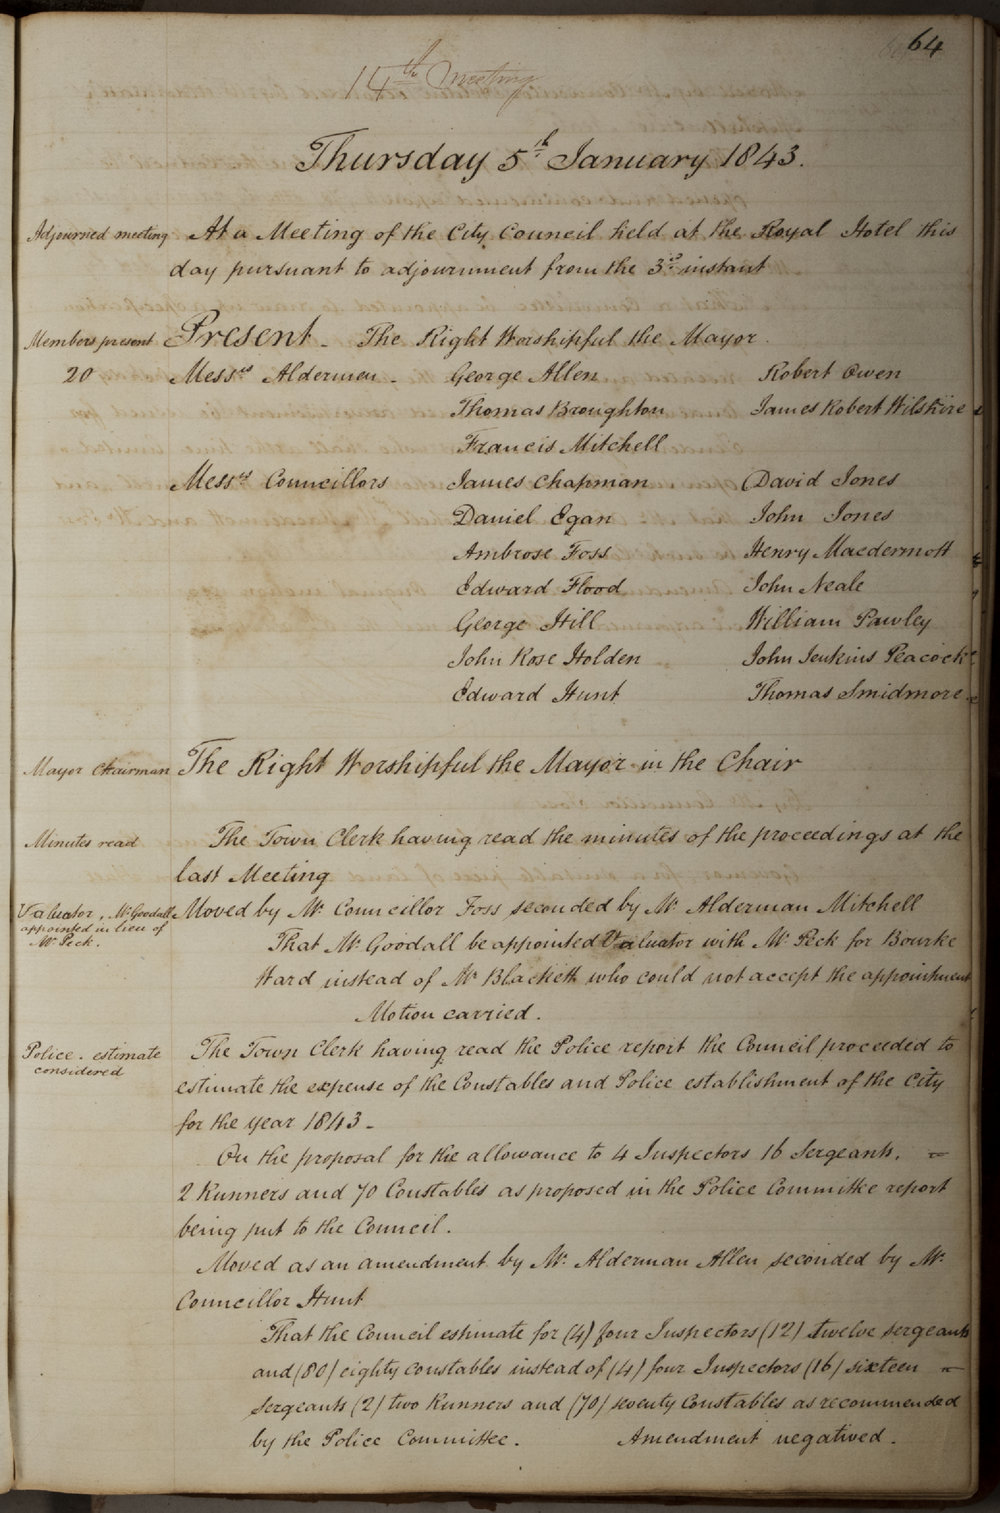 64
14th Meeting
Thursday 5th January 1843.
Adjourned meeting At a Meeting of the City Council held at the Royal Hotel this
day pursuant to adjournment from the 3rd instant
Members present Present - The Right Worshipful the Mayor.
20 Messrs Aldermen - George Allen Robert Owen
Thomas Broughton James Robert Wilshire
Francis Mitchell
Messrs Councillors James Chapman David Jones
Daniel Egan John Jones
Ambrose Foss Henry Macdermott
Edward Flood John Neale
George Hill William Pawley
John Rose Holden John Jenkins Peacock
Edward Hunt Thomas Smidmore.
Mayor Chairman The Right Worshipful the Mayor in the Chair
Minutes read The Town Clerk having read the minutes of the proceedings at the
last Meeting
Valuator, Mr Goodall Moved by Mr Councillor Foss seconded by Mr Alderman Mitchell
appointed in lieu of
Mr Peck. That Mr Goodall be appointed Valuator with Mr Peck for Bourke
Ward instead of Mr Blackett who could not accept the appointment
Motion carried.
Police. estimate The Town Clerk having read the Police report the Council proceeded to
considered
estimate the expense of the Constables and Police establishment of the City
for the year 1843 -
On the proposal for the allowance to 4 Inspectors 16 Sergeants,
2 Runners and 70 Constables as proposed in the Police Committee report
being put to the Council.
Moved as an amendment by Mr Alderman Allen seconded by Mr
Councillor Hunt
That the Council estimate for (4) four Inspectors (12) twelve sergeants
and (80) eighty constables instead of (4) four Inspectors (16) sixteen
Sergeants (2) two Runners and (70) seventy Constables as recommended
by the Police Committee. Amendment negatived.